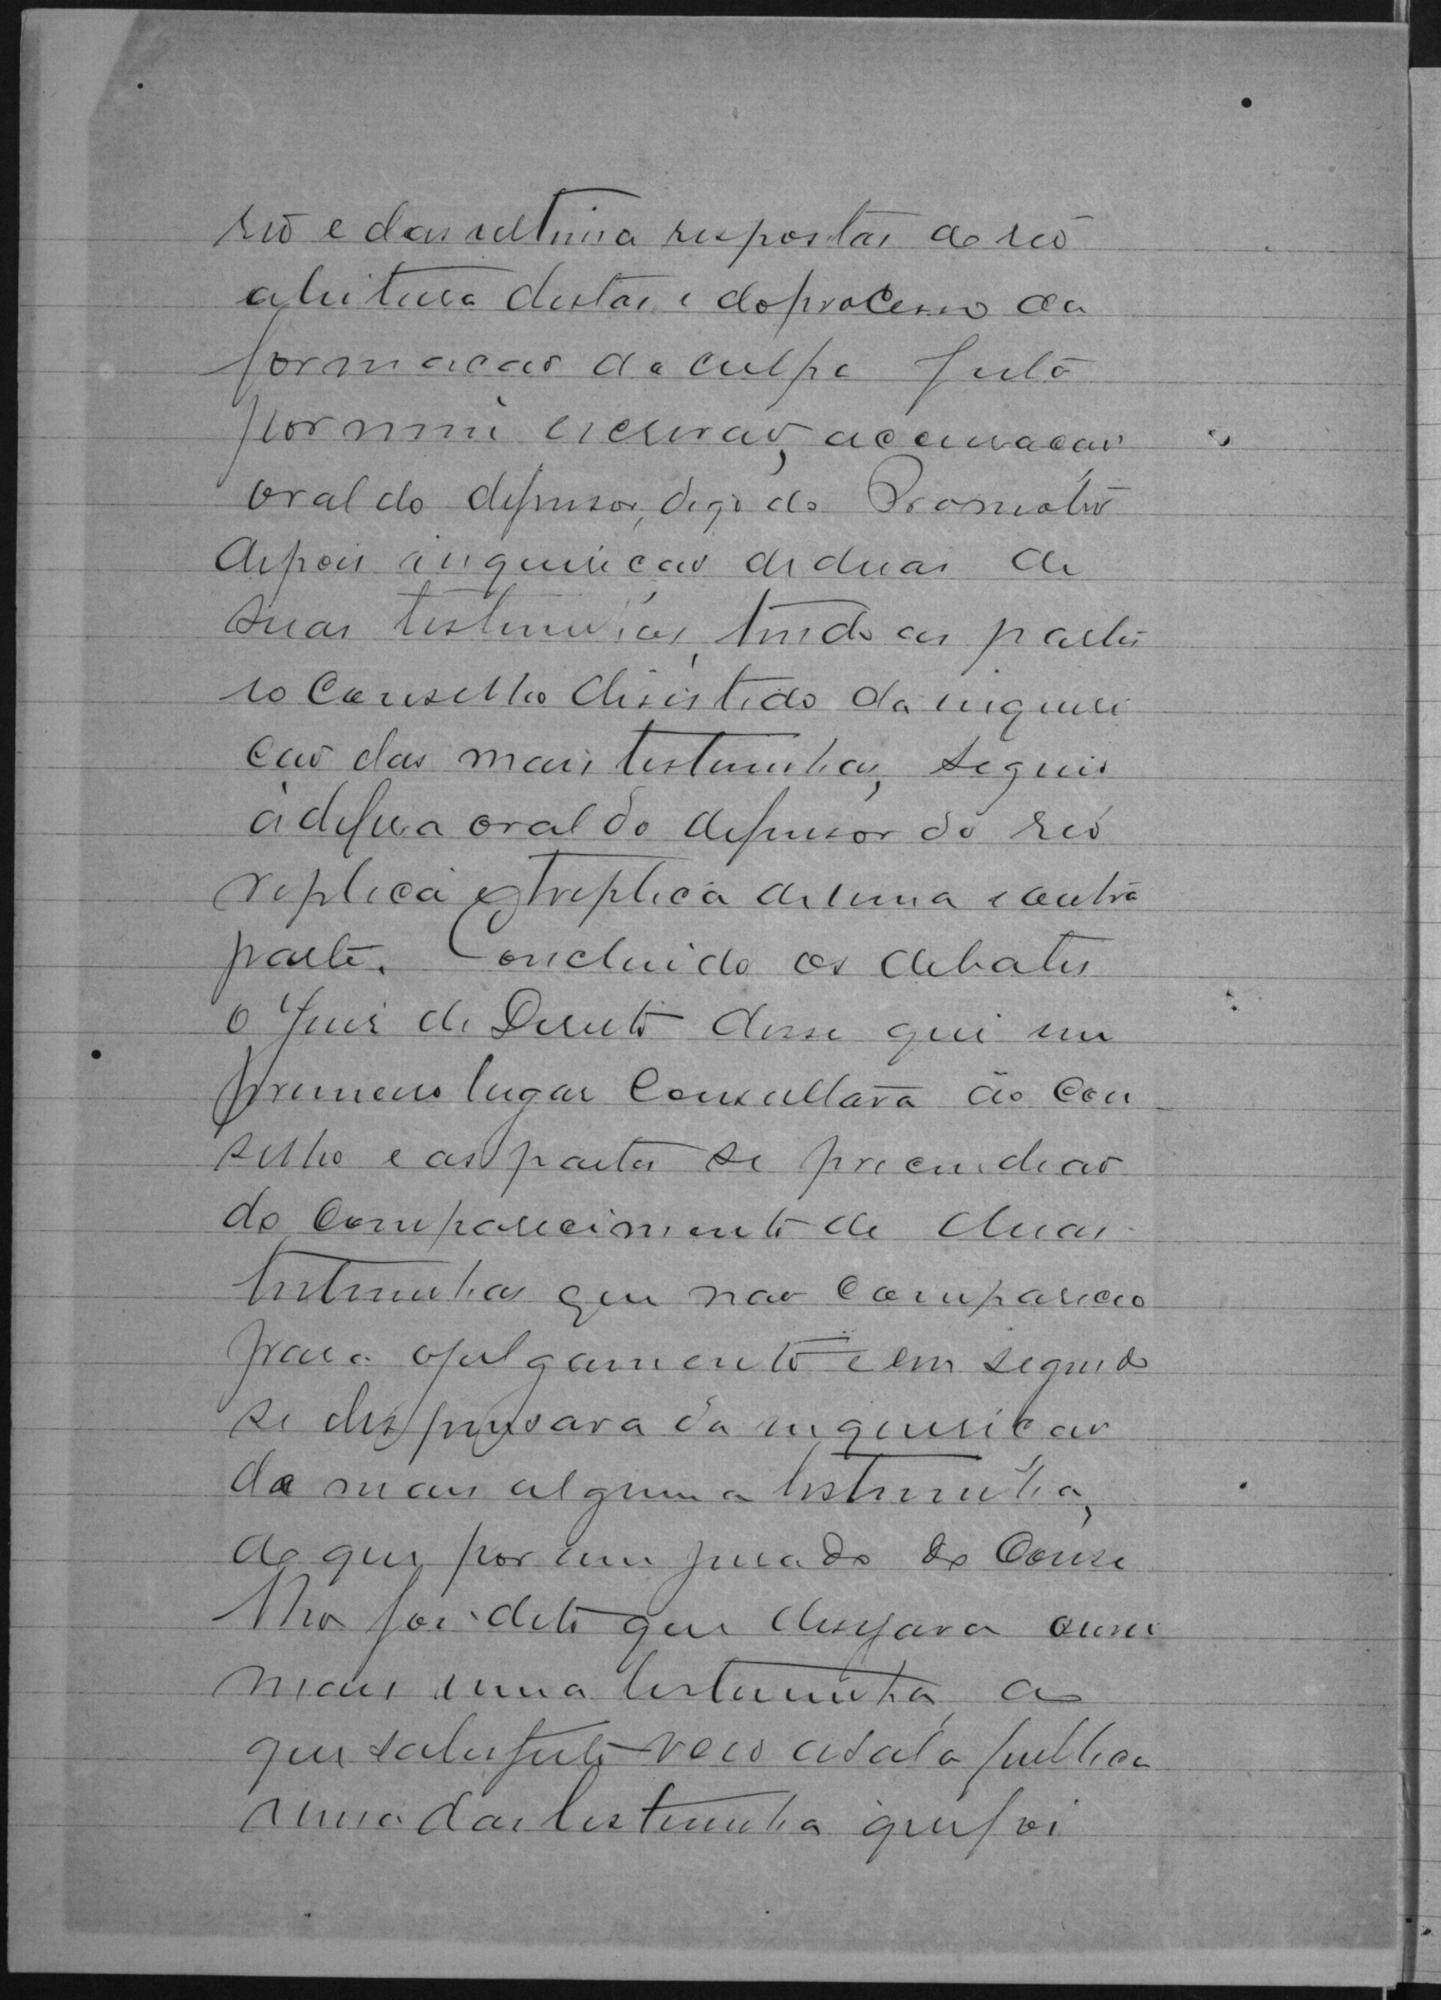 reo e das ultima respostas do reo
a leitura destas e do processo da
formacao da culpa feita
por mim escrivao, accusacao
oral do defensor, digo do Promotor
depois inquiricao de duas de
suas testemunhas, tendo as partes
e o Conselho desistido da inquiri
cao das mais testemunhas, seguio
a defesa oral do defensor do reo
replica e treplica de uma e outra
parte. Concluido os debates
o Juis de Direito disse que em
primeiro lugar Consultava ao Con
selho e as partes se precindiao
do Comparecimento de duas
testemunhas que nao Compareceo
para o julgamento e em seguida
se despensava da inquiricao
de mais alguma testemunha,
do que por um jurado do Conse
lho foi dito que desejava ouvir
mais uma testemunha, ao
que satisfeito veio a sala publica
uma das testemunha que foi